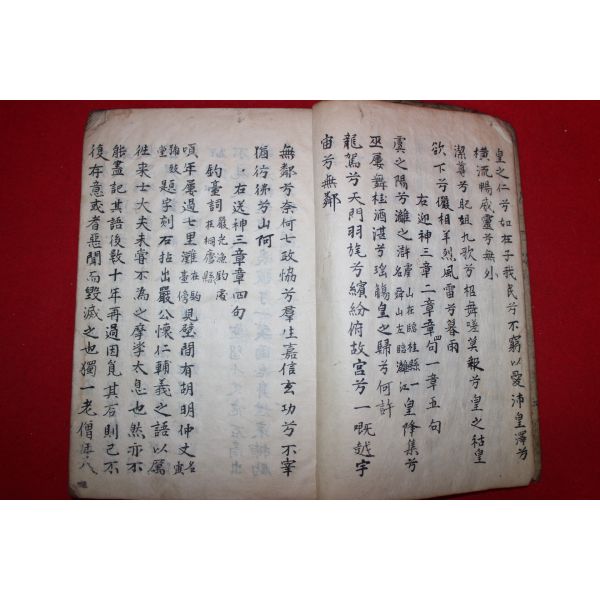 皇之仁兮如在子我民兮不窮以愛沛皇澤兮
橫流暢威靈兮無外
潔尊兮肥俎九歌兮招舞嗟莫報兮皇之祜皇
欲下兮儼相羊烈風雷兮暮雨
右迎神三章二章章句一章五句
虞之陽兮灕之滸皐山在臨桂縣一名舜山左臨灕江皇降集兮
巫屢舞桂酒湛兮瑤觴皇之歸兮何許
龍駕兮天門羽旄兮繽紛俯故宮兮一嘅越宇
宙兮無鄰
無鄰兮奈何七政協兮羣生嘉信玄功兮不宰
猶彷彿兮山阿
右送神三章章四句
釣臺詞嚴光漁釣處在桐廬縣
頃年屢過七里灘在釣臺傍見壁間有胡明仲丈名寅
題字刻石拈出嚴公懷仁輔義之語以厲
往來士大夫未嘗不為之摩挲太息也然亦不
能盡記其語後數十年再過因覓其石則已不
復存意或者惡聞而毀滅之也獨一老僧年八